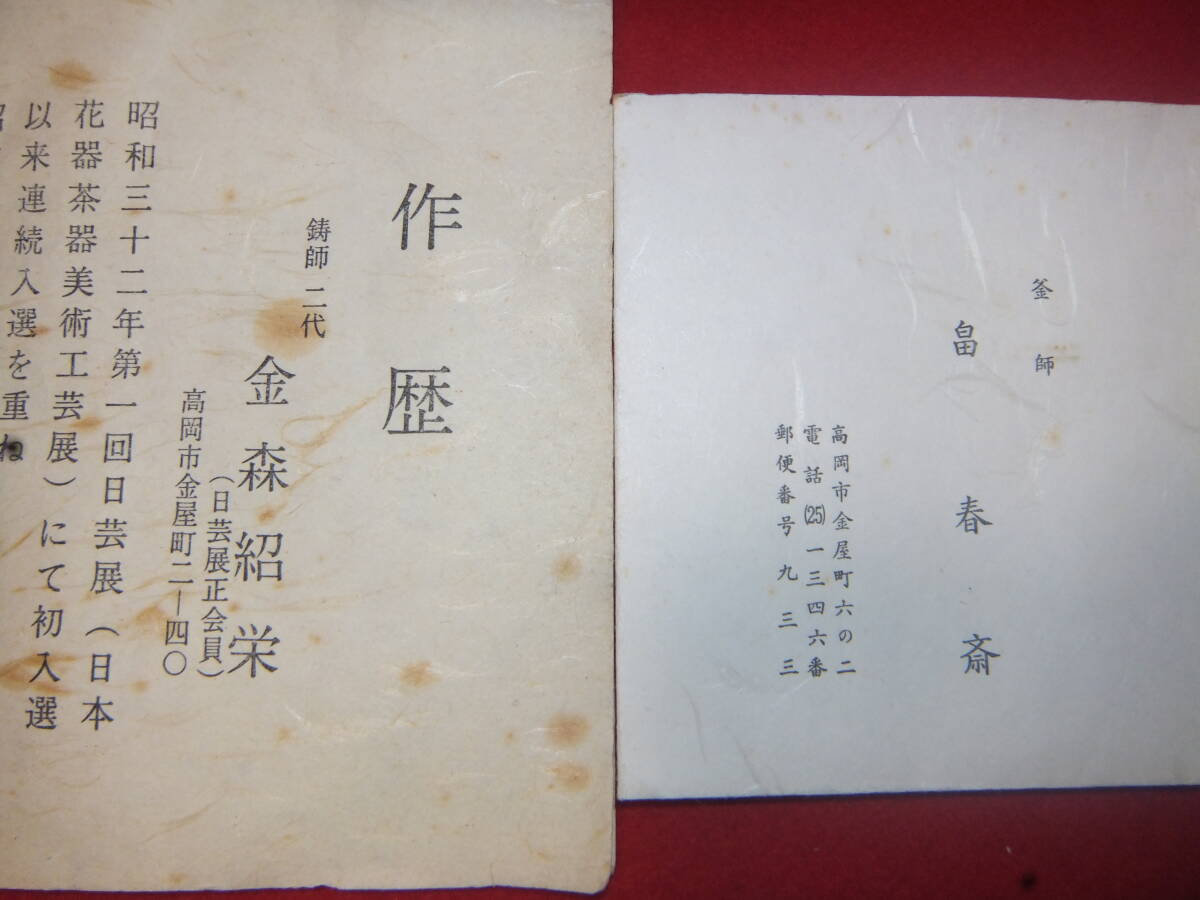 作歴
鋳師 二代
金森紹栄
(日芸展正会員)
高岡市金屋町二―四〇
昭和三十二年第一回日芸展(日本
花器茶器美術工芸展)にて初入選
以来連続入選を重ね
釜師
畠春斎
高岡市金屋町六の二
電話(25)一三四六番
郵便番号九三三